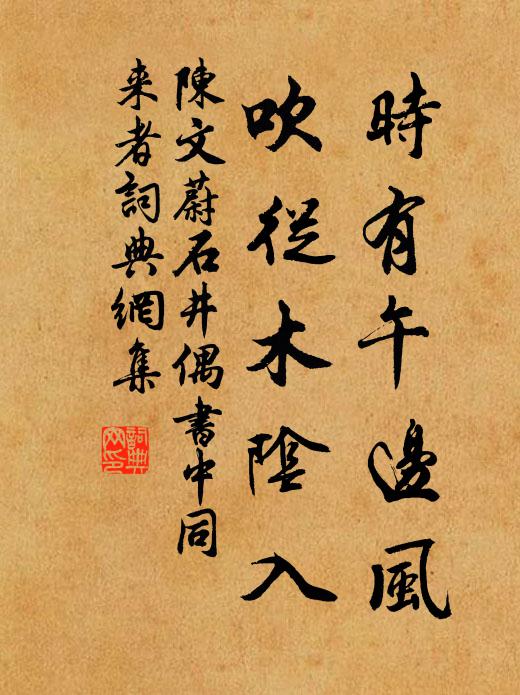 時有午邊風
吹從木陰入
陳文蔚石井偶書中同
来者詞典網集
詞典网印